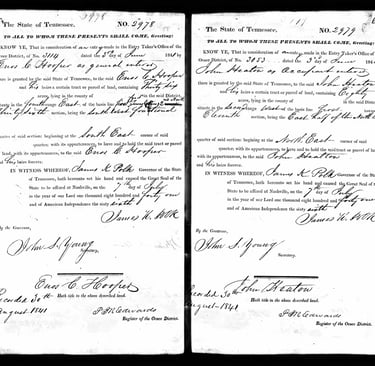 2978
The State of Tennessee, NO. 2978
TO ALL TO WHOM THESE PRESENTS SHALL COME, Greeting:
KNOW YE, That in consideration of an entry made in the Entry Taker's Office of the
Ocoee District, of No. 3114 dated the 3d of June 1841 by
Enos C Hooper as general enterer
there is granted by the said State of Tennessee, to the said Enos C Hooper
and his heirs a certain tract or parcel of land, containing
acres, lying in the county of in the said District,
East of the basis line
being the South West
quarter of said section: beginning at the South East corner of said
quarter section, with its appurtenances, to have and to hold the said tract or parcel of
land, with its appurtenances, to the said Enos C. Hooper
and his heirs forever.
IN WITNESS WHEREOF, James K Polk Governor of the State of
Tennessee, hath hereunto set his hand and caused the Great Seal of the
State to be affixed at Nashville, on the 7th day of July
in the year of our Lord one thousand eight hundred and forty one
and of American Independence the sixty sixth
James K. Polk
By the Governor,
John S. Young
Secretary.
Enos C. Hooper
Hath title to the above described land.
Recorded 30th
August 1841
P M Edwards
Register of the Ocoee District.
The State of Tennessee, NO. 2979
TO ALL TO WHOM THESE PRESENTS SHALL COME, Greeting:
KNOW YE, That in consideration of an entry made in the Entry Taker's Office of the
Ocoee District, of No. 3053 dated the 3 of June 1841 by
John Heaton as Occupant enterer
there is granted by the said State of Tennessee, to the said John Heaton
and his heirs a certain tract or parcel of land, containing Eighty
acres, lying in the county of in the said District,
of the basis line
being the East half of the North
quarter of said section: beginning at the North East corner of said
quarter section, with its appurtenances, to have and to hold the said tract or parcel of
land, with its appurtenances, to the said John Heaton
and his heirs forever.
IN WITNESS WHEREOF, James K Polk Governor of the State of
Tennessee, hath hereunto set his hand and caused the Great Seal of the
State to be affixed at Nashville, on the 7th day of July
in the year of our Lord one thousand eight hundred and forty one
and of American Independence the sixty sixth
James K. Polk
By the Governor,
John S. Young
Secretary.
John Heaton
Hath title to the above described land.
Recorded 30th
August 1841
P M Edwards
Register of the Ocoee District.